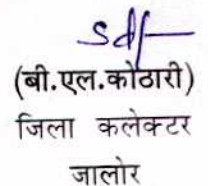 sd/-
(बी.एल.कोठारी)
जिला कलेक्टर
जालोर